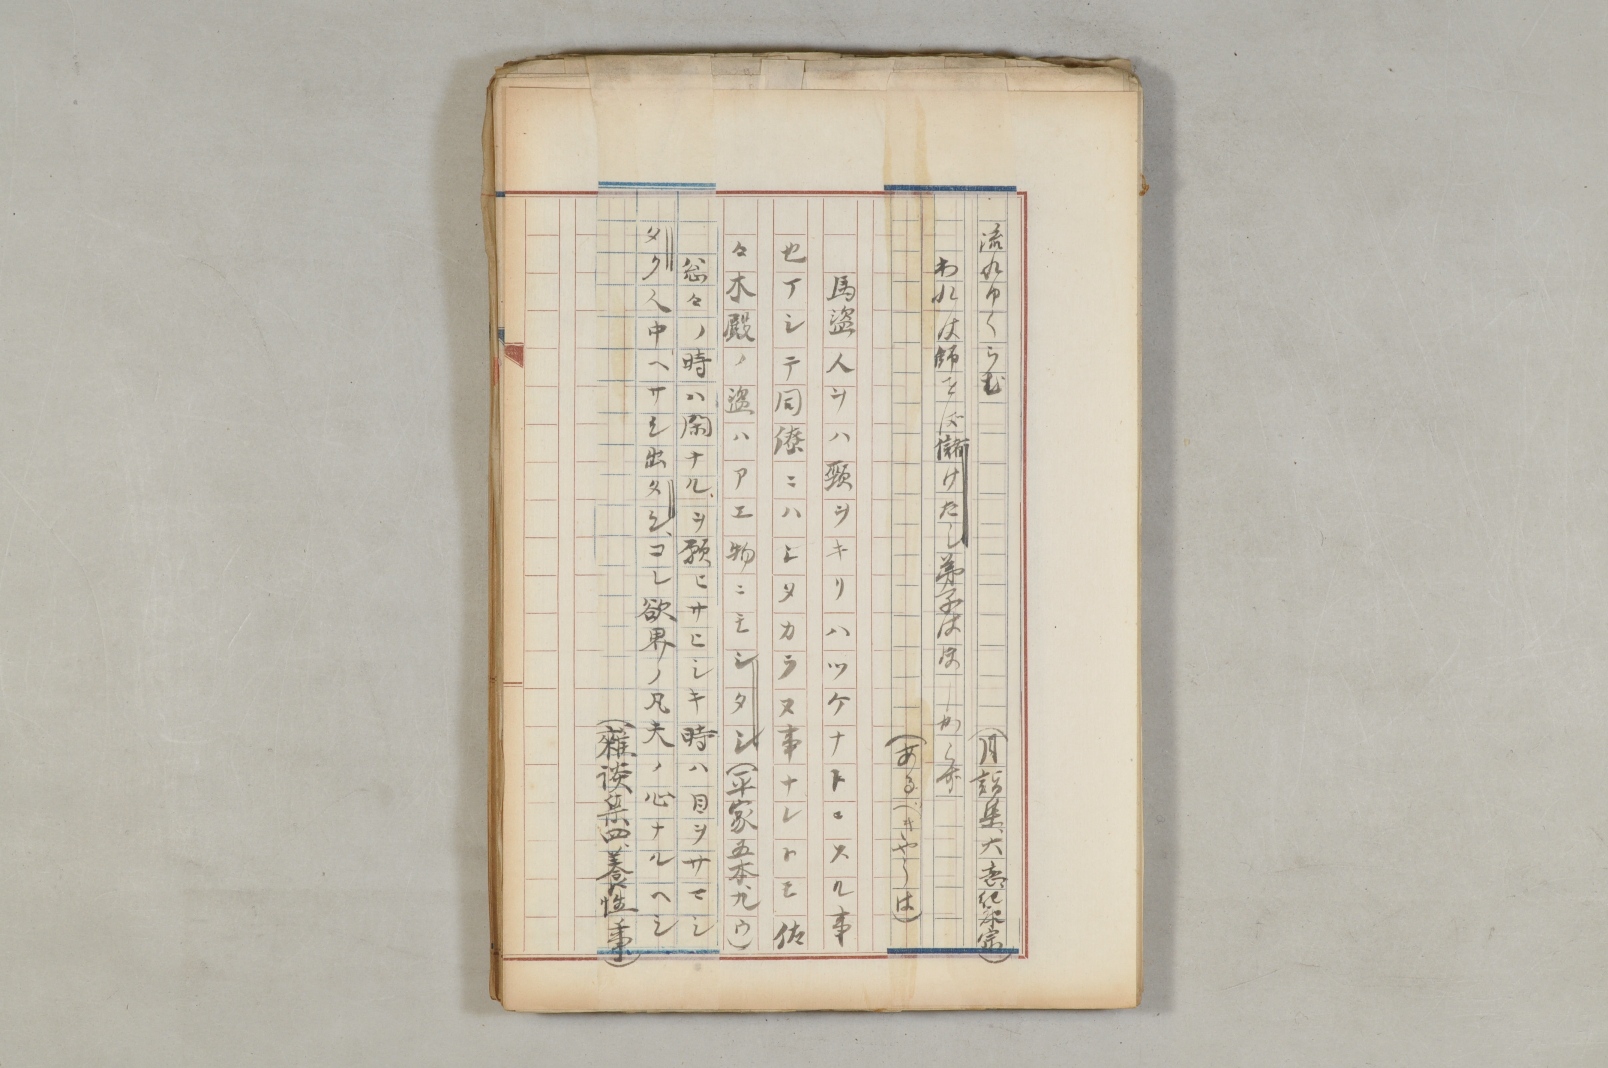 流れゆくらむ
(月詣集、大意仍永宗)
われは師をば儲けたし弟子はほしからず
(あるべきやうは)
馬盗人ヲハ頸ヲキリハツケナトニスル事
也アシテ同僚ニハシタカラヌ事ナレトモ佐
々木殿ノ盗ハアエ物ニモシタシ(平家五本、九ウ)
怱々ノ時ハ閑ナル、ヲ願ヒサヒシキ時ハ目ヲサマシ
タク人中ヘサシ出タシ、コレ欲界ノ凡夫ノ心ナルヘシ
(雑談集四、養性事)